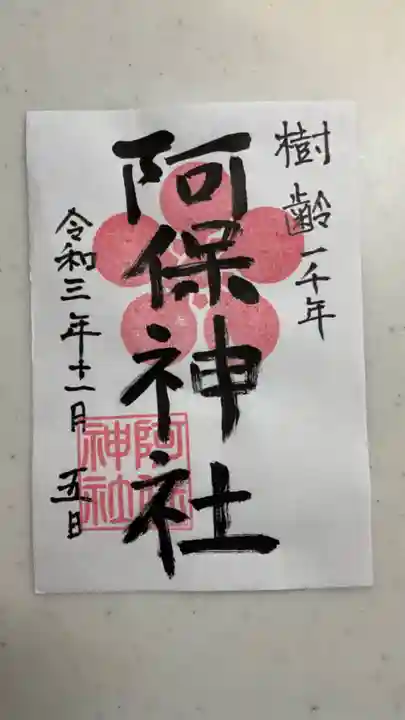 樹齢一千年
阿保神社
令和三年十一月五日
阿保
神社